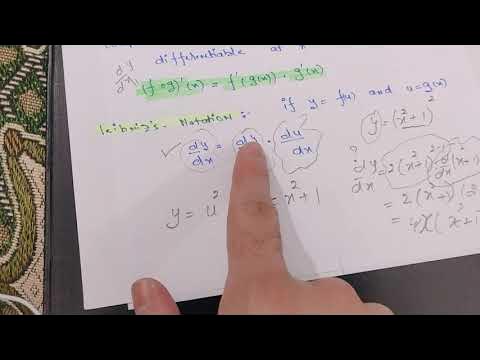 differentiable at x
dy
dx
(f∘g)'(x) = f'(g(x)) · g'(x)
Leibniz's - Notation :- if y = f(u) and u = g(x)
✓ dy/dx = dy · du/dx
y = u² = x² + 1
y = (x²+1)²
dy/dx = 2(x²+1)²⁻¹ d/dx (x²+1)
= 2(x²+1)
= 4x(x²+1